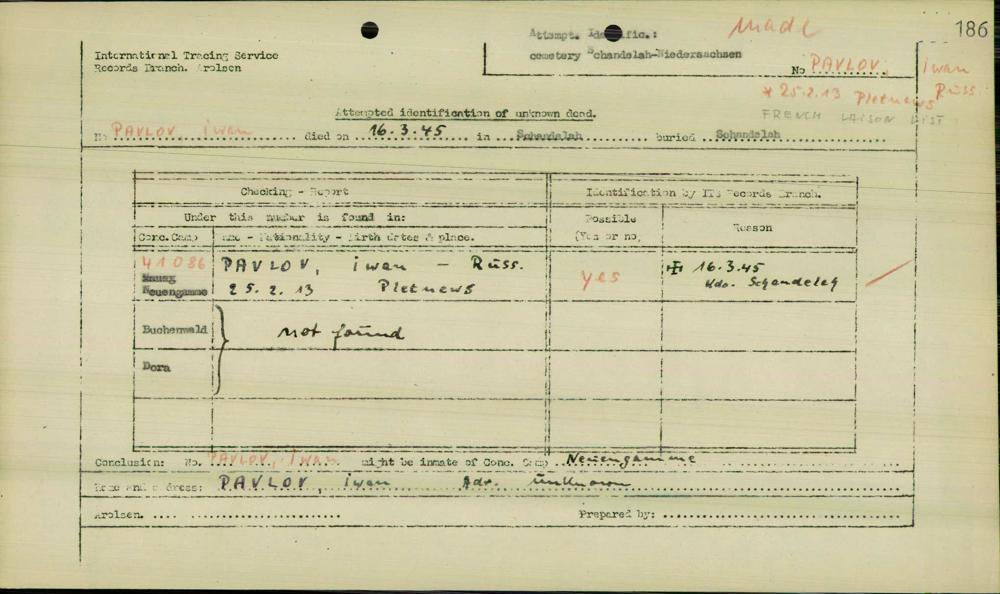 186
made
Attempt. Identific.:
cemetery Schandelah-Niedersachsen
International Tracing Service
Records Branch. Arolsen
No PAVLOV, iwan
* 25.2.13 Pletnews Rüss.
FRENCH LAISON LIST
Attempted identification of unknown dead.
No PAVLOV iwan died on 16.3.45 in Schandelah buried Schandelah
Checking - Report
Identification by ITS Records Branch.
Under this number is found in:
Possible
(Yes or no,
Reason
Conc.Camp
Name - Nationality - Birth dates & place.
41086
PAVLOV, iwan - Rüss.
yes
16.3.45
Neuengamme
25.2.13 Pletnews
Kdo. Schandelah
Buchenwald
not found
Dora
Conclusion: No. PAVLOV, iwan might be inmate of Conc. Camp Neuengamme
Name and address: PAVLOV, iwan Adr. unknown
Arolsen.
Prepared by: